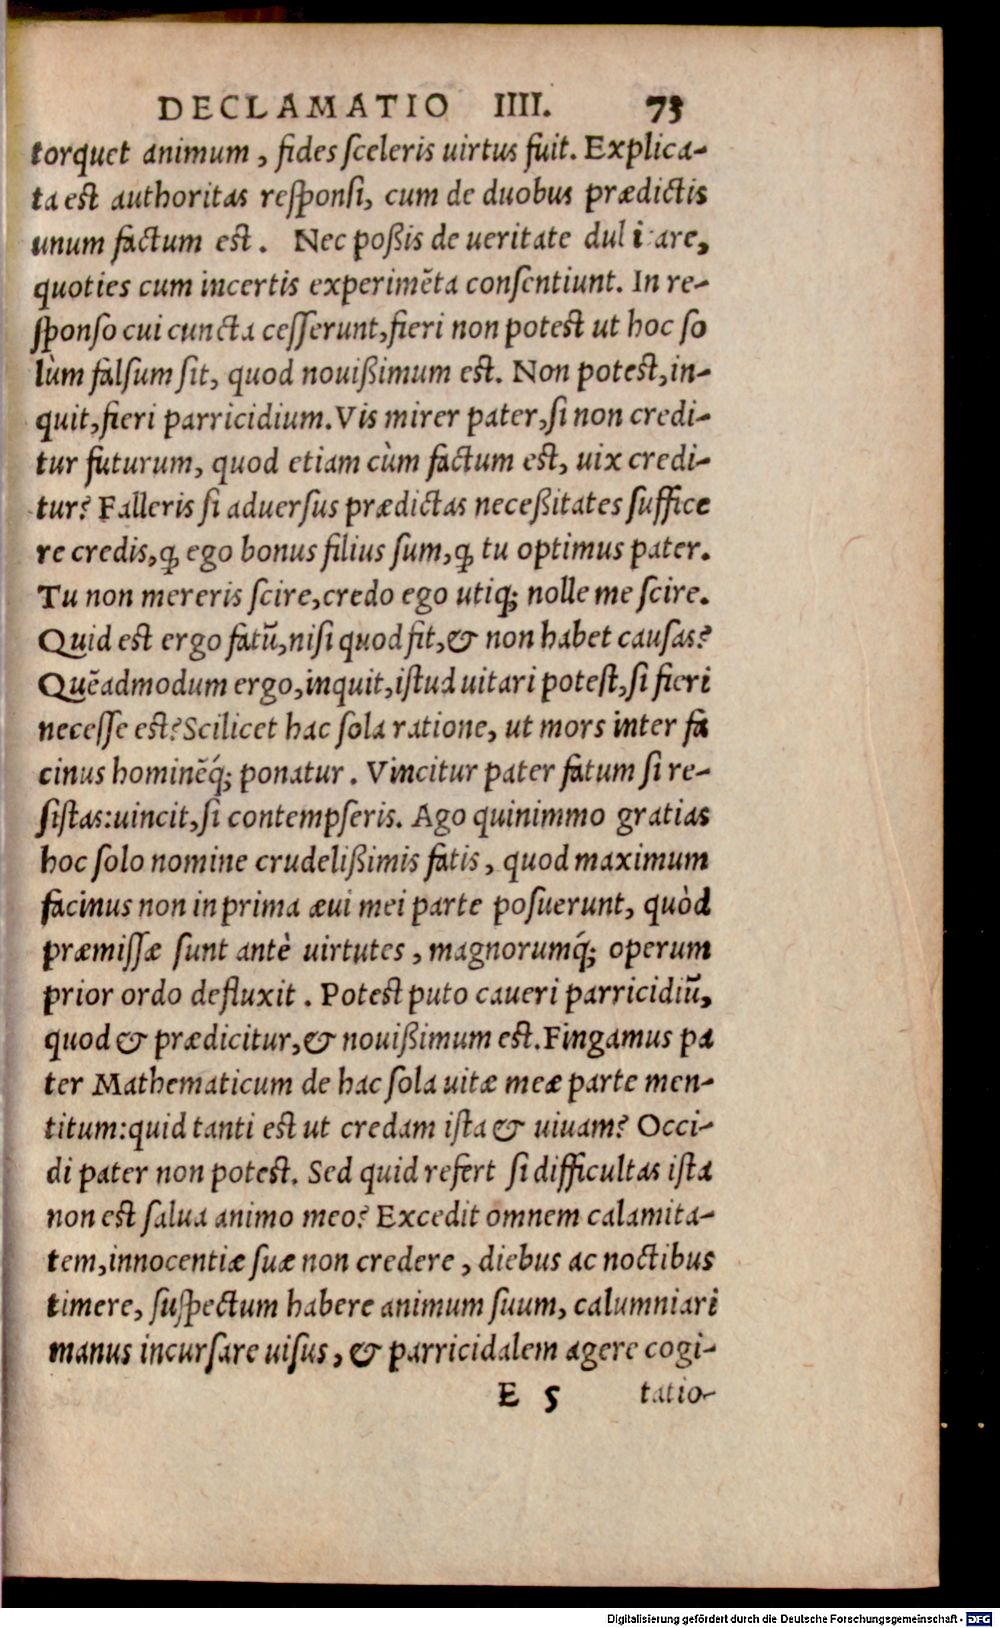 DECLAMATIO IIII. 73
torquet animum, fides sceleris uirtus fuit. Explica-
ta est authoritas responsi, cum de duobus prædictis
unum factum est. Nec poßis de ueritate dul i are,
quoties cum incertis experimẽta consentiunt. In re-
sponso cui cuncta cesserunt, fieri non potest ut hoc so
lùm falsum sit, quod nouißimum est. Non potest, in-
quit, fieri parricidium. Vis mirer pater, si non credi-
tur futurum, quod etiam cùm factum est, uix credi-
tur? Falleris si aduersus prædictas neceßitates suffice
re credis, ꝙ ego bonus filius sum, ꝙ tu optimus pater.
Tu non mereris scire, credo ego utiq; nolle me scire.
Quid est ergo fatũ, nisi quod fit, & non habet causas?
Quẽadmodum ergo, inquit, istud uitari potest, si fieri
necesse est? Scilicet hac sola ratione, ut mors inter fa
cinus hominẽq́; ponatur. Vincitur pater fatum si re-
sistas: uincit, si contempseris. Ago quinimmo gratias
hoc solo nomine crudelißimis fatis, quod maximum
facinus non in prima æui mei parte posuerunt, quòd
præmissæ sunt antè uirtutes, magnorumq́; operum
prior ordo defluxit. Potest puto caueri parricidiũ,
quod & prædicitur, & nouißimum est. Fingamus pa
ter Mathematicum de hac sola uitæ meæ parte men-
titum: quid tanti est ut credam ista & uiuam? Occi-
di pater non potest. Sed quid refert si difficultas ista
non est salua animo meo? Excedit omnem calamita-
tem, innocentiæ suæ non credere, diebus ac noctibus
timere, suspectum habere animum suum, calumniari
manus incursare uisus, & parricidalem agere cogi-
E 5 tatio-
Digitalisierung gefördert durch die Deutsche Forschungsgemeinschaft - DFG